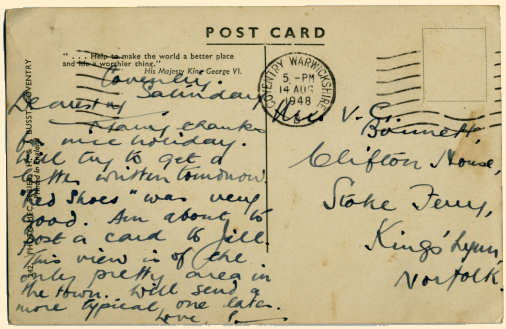 POST CARD
" . . . Help to make the world a better place
and life a worthier thing."
His Majesty King George VI.
COVENTRY WARWICKSHIRE
5 - PM
14 AUG
1948
Coventry.
Saturday
Dearest
Many thanks
for nice holiday.
Will try to get a
letter written tomorrow.
"Red Shoes" was very
good. Am about to
post a card to Jill.
This view is of the
only pretty area in
the town. Will send a
more typical one later.
Love
Mrs. V. C.
Bonnett,
Clifton House,
Stoke Ferry,
King's Lynn,
Norfolk.
COVENTRY